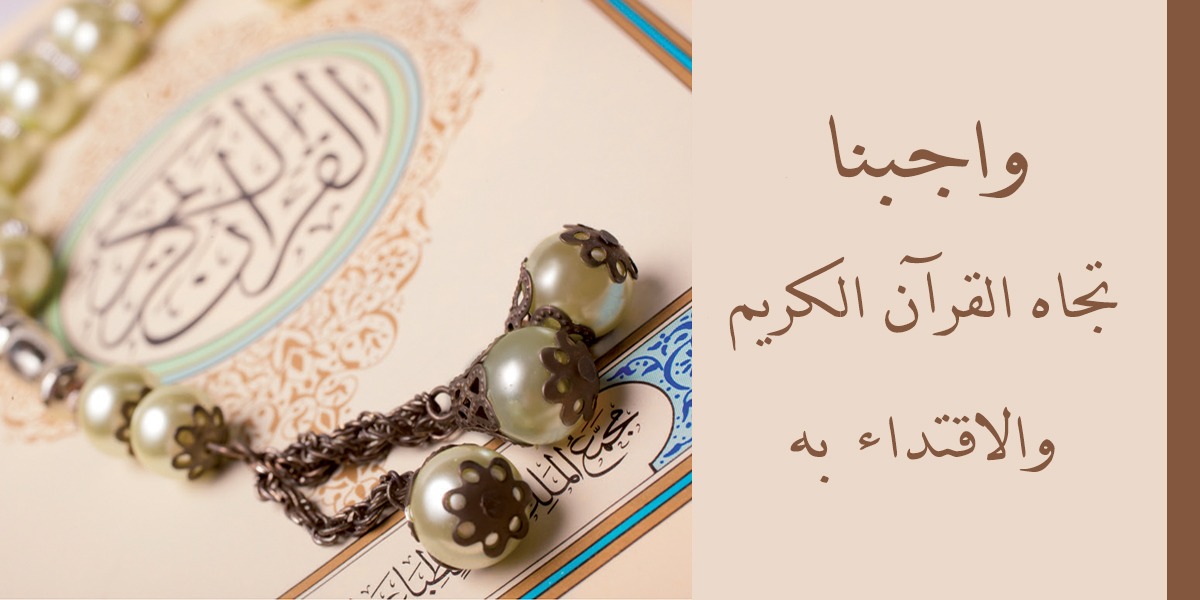 واجبنا
تجاه القرآن الكريم
والاقتداء به
القرآن الكريم
مجمع الملك